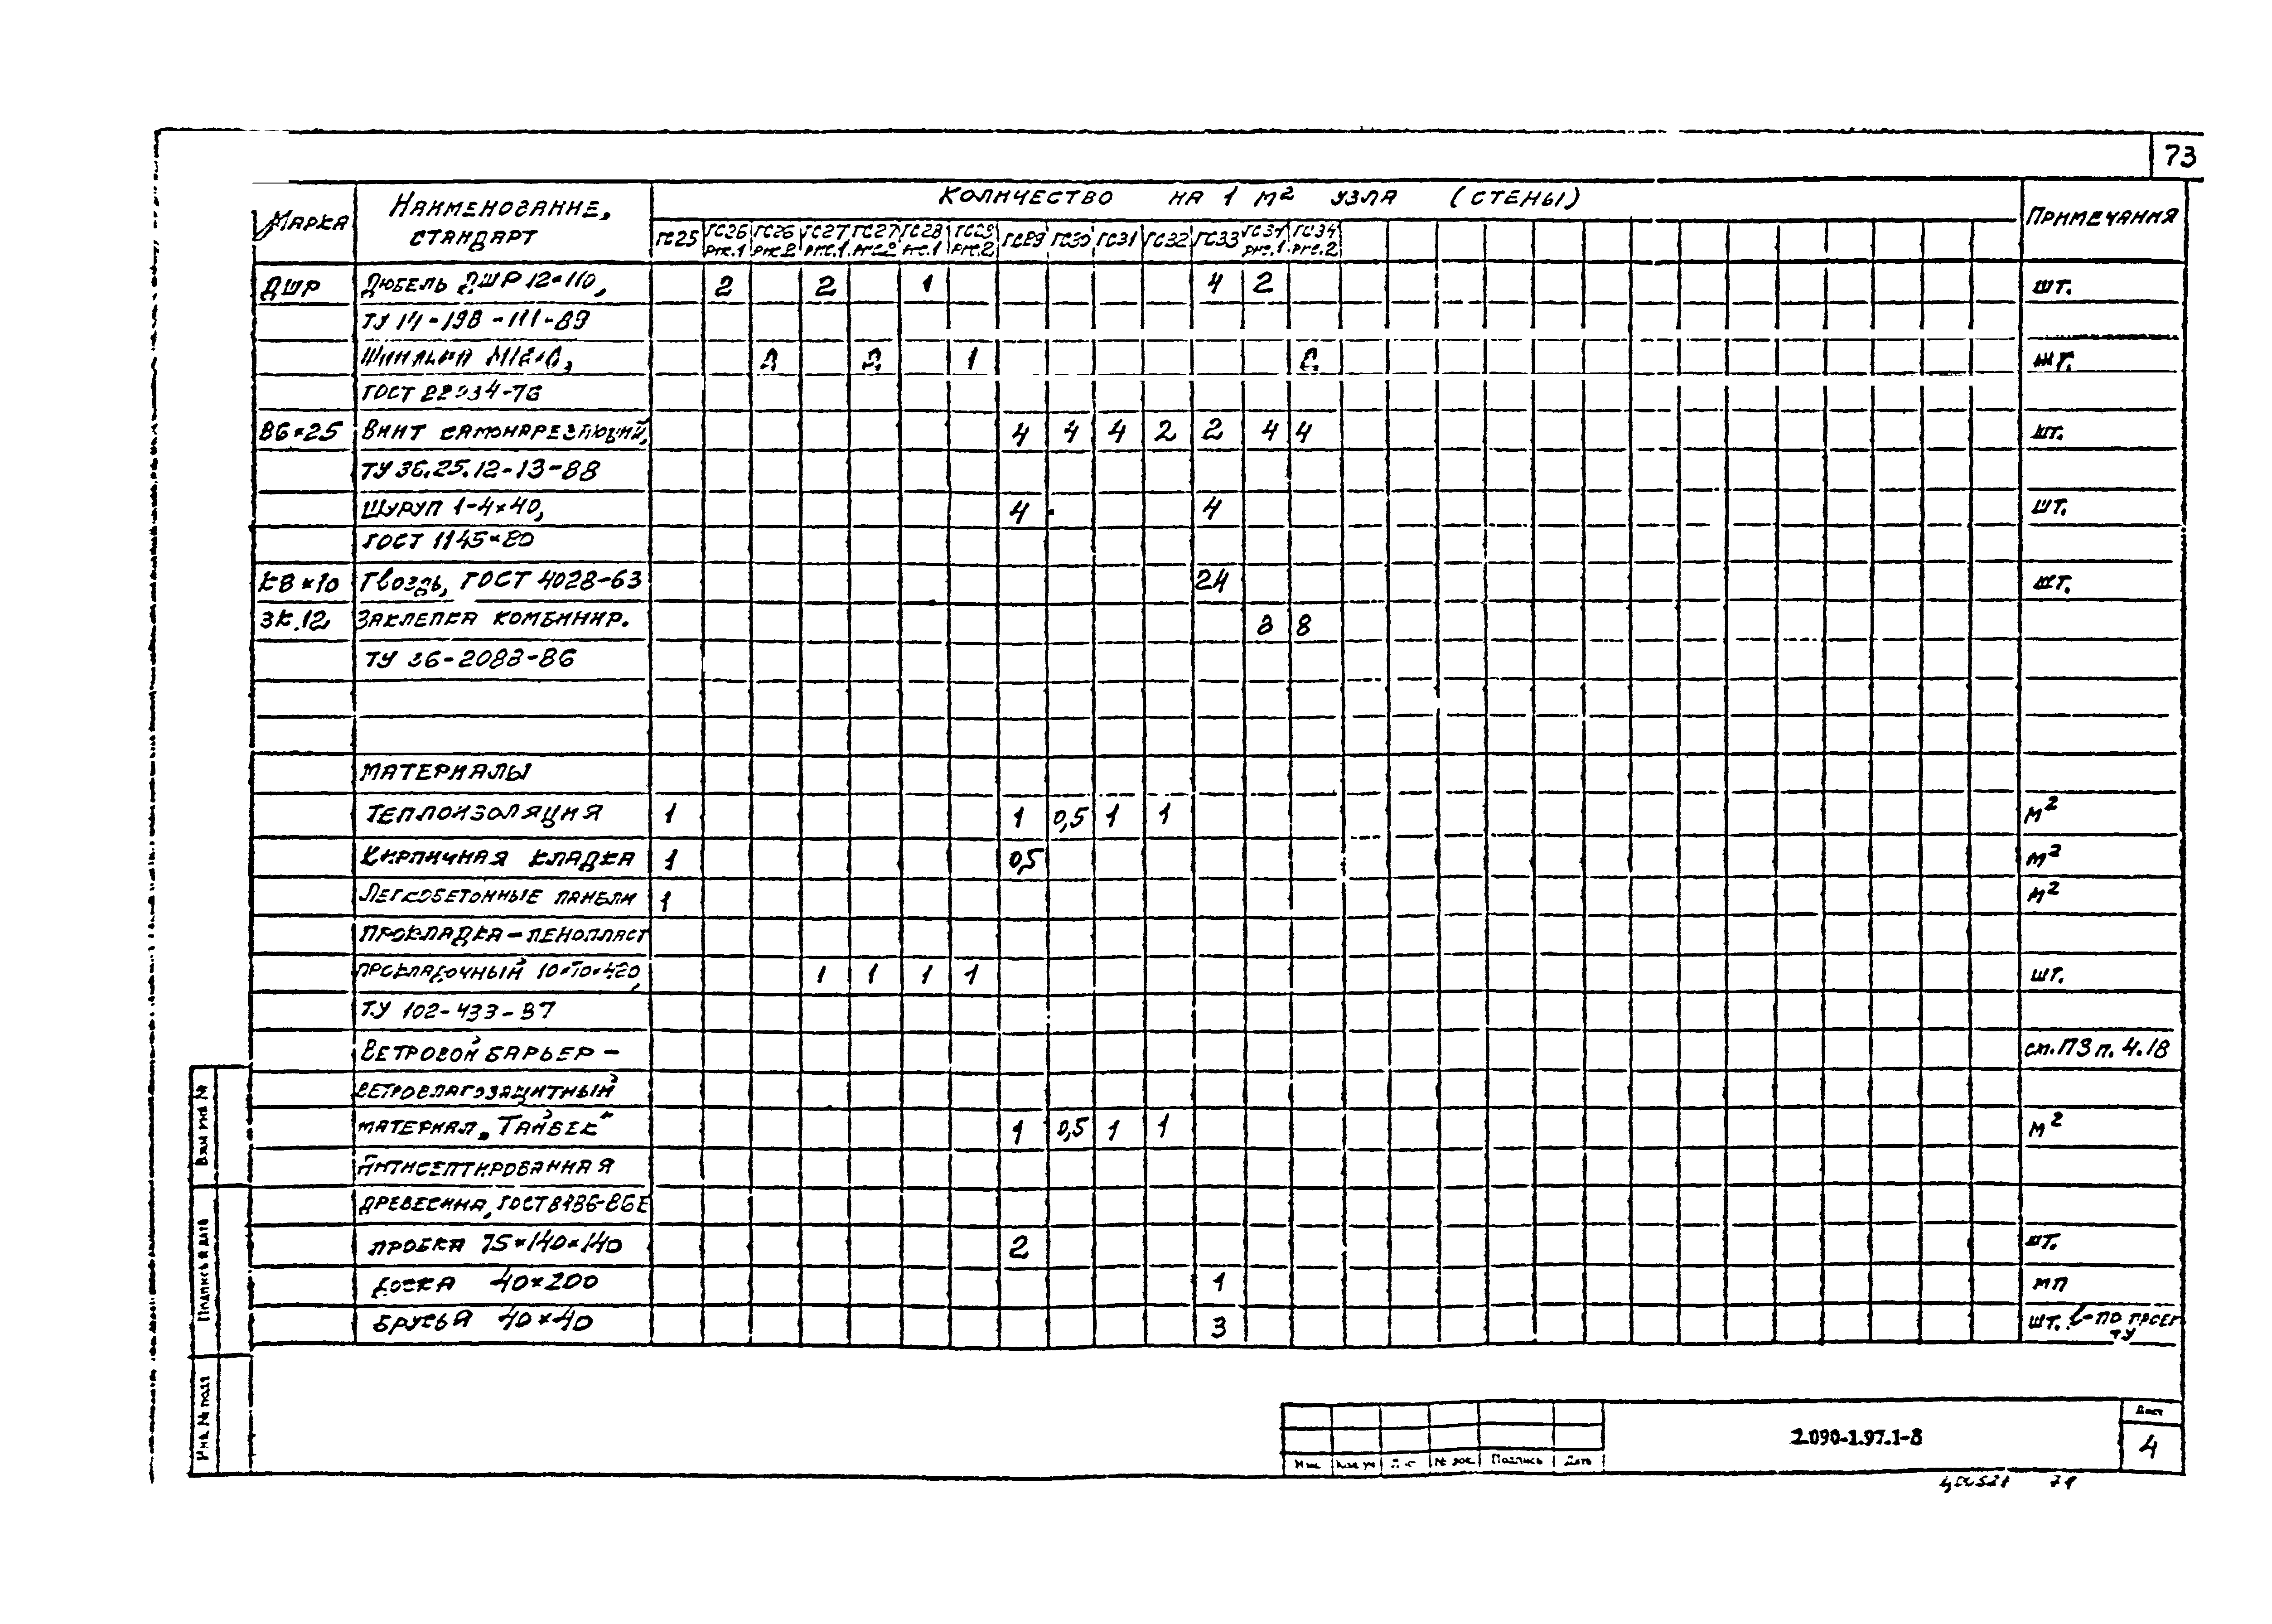 73
Марка
Наименование, стандарт
Количество на 1 м² узла (стены)
Примечания
ГС25 ГС26 рис.1 ГС26 рис.2 ГС27 рис.1 ГС27 рис.2 ГС28 рис.1 рис.2 ГС29 ГС30 ГС31 ГС32 ГС33 ГС34 рис.1 ГС34 рис.2
ДШР Дюбель ДШР 12×110, 2 2 1 4 2 шт.
ТУ 14-198-111-89
Шпилька 1 шт.
ГОСТ
В6×25 Винт самонарезающий, 4 4 4 2 2 4 4 шт.
ТУ 36.25.12-13-88
Шуруп 1-4×40, 4 4 шт.
ГОСТ 1145-80
К8×10 Гвоздь, ГОСТ 4028-63 24 шт.
ЗК.12 Заклепка комбинир. 8 8
ТУ 36-2088-86
Материалы
Теплоизоляция 1 1 0,5 1 1 м²
Кирпичная кладка 1 0,5 м²
Легкобетонные панели 1 м²
Прокладка - пенопласт
прокладочный 10×70×420, 1 1 1 1 шт.
ТУ 102-433-87
Ветровой барьер - см. ПЗ п. 4.18
ветровлагозащитный
материал „Тайвек“ 1 0,5 1 1 м²
Антисептированная
древесина, ГОСТ 8486-86Е
пробка 75×140×140 2 шт.
доска 40×200 1 мп
брусья 40×40 3 шт. ℓ-по проекту
Взам инв №
Подпись и дата
Инв. № подл
Изм. Кол.уч № док. Подпись Дата
2.090-1.97.1-8
Лист
4